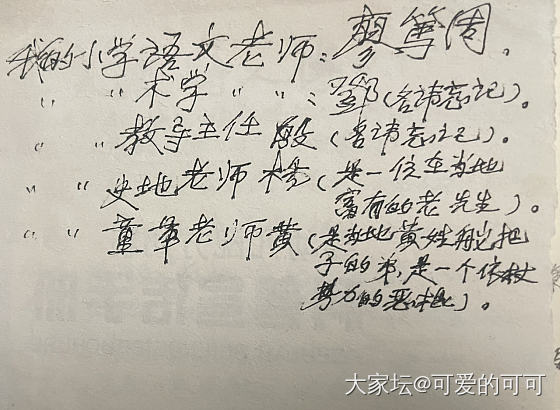 我的小学语文老师：廖笃周。
〃 〃 术学 〃 〃：邓（名讳忘记）。
〃 〃 教导主任 殷（名讳忘记）。
〃 〃 史地老师 杨（是一位在当地
富有的老先生）。
〃 〃 童军老师黄（是当地黄姓 把
子的弟，是一个依杖
势力的恶棍）。
大家坛@可爱的可可